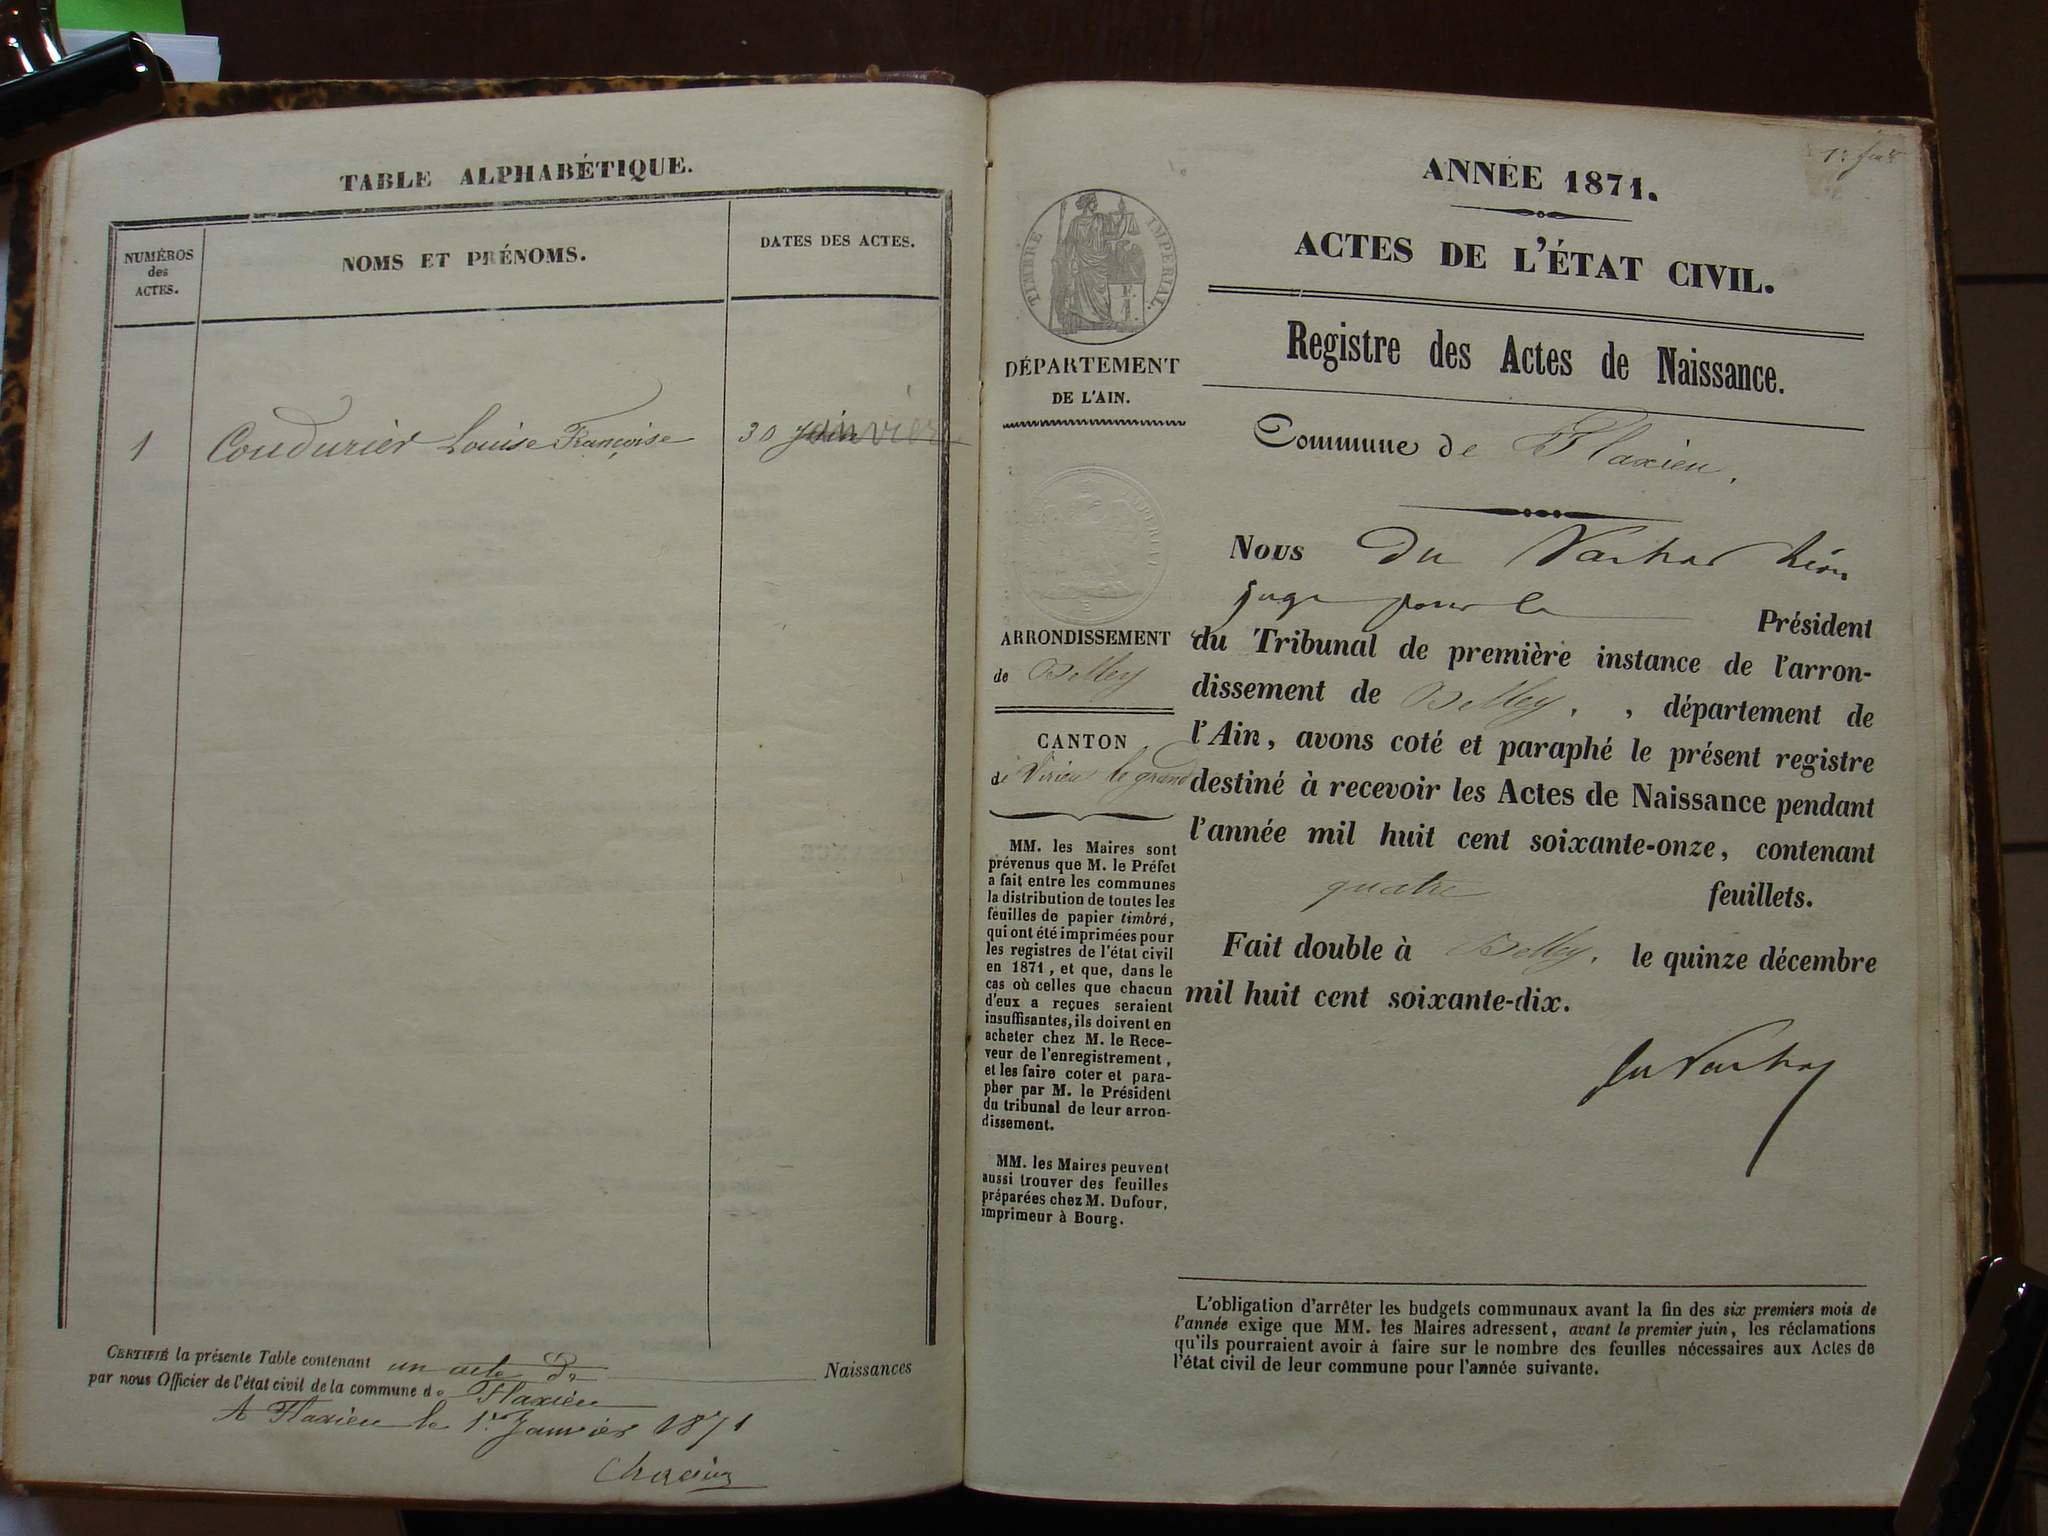 TABLE ALPHABÉTIQUE.
NUMÉROS
des
ACTES.
NOMS ET PRÉNOMS.
DATES DES ACTES.
1 Coudurier Louise Françoise 30 janvier
CERTIFIÉ la présente Table contenant un acte De Naissances
par nous Officier de l'état civil de la commune de Flaxieu
A Flaxieu le 1er Janvier 1871
1er feuet
ANNÉE 1871.
ACTES DE L'ÉTAT CIVIL.
Registre des Actes de Naissance.
Commune de Flaxieu.
Nous Du Léon
juge pour le Président
du Tribunal de première instance de l'arron-
dissement de Belley, , département de
l'Ain, avons coté et paraphé le présent registre
destiné à recevoir les Actes de Naissance pendant
l'année mil huit cent soixante-onze, contenant
quatre feuillets.
Fait double à Belley, le quinze décembre
mil huit cent soixante-dix.
L'obligation d'arrêter les budgets communaux avant la fin des six premiers mois de
l'année exige que MM. les Maires adressent, avant le premier juin, les réclamations
qu'ils pourraient avoir à faire sur le nombre des feuilles nécessaires aux Actes de
l'état civil de leur commune pour l'année suivante.
TIMBRE IMPÉRIAL.
DÉPARTEMENT
DE L'AIN.
ARRONDISSEMENT
de Belley
CANTON
de Virieu le grand
MM. les Maires sont
prévenus que M. le Préfet
a fait entre les communes
la distribution de toutes les
feuilles de papier timbré,
qui ont été imprimées pour
les registres de l'état civil
en 1871, et que, dans le
cas où celles que chacun
d'eux a reçues seraient
insuffisantes, ils doivent en
acheter chez M. le Rece-
veur de l'enregistrement,
et les faire coter et para-
pher par M. le Président
du tribunal de leur arron-
dissement.
MM. les Maires peuvent
aussi trouver des feuilles
préparées chez M. Dufour,
imprimeur à Bourg.